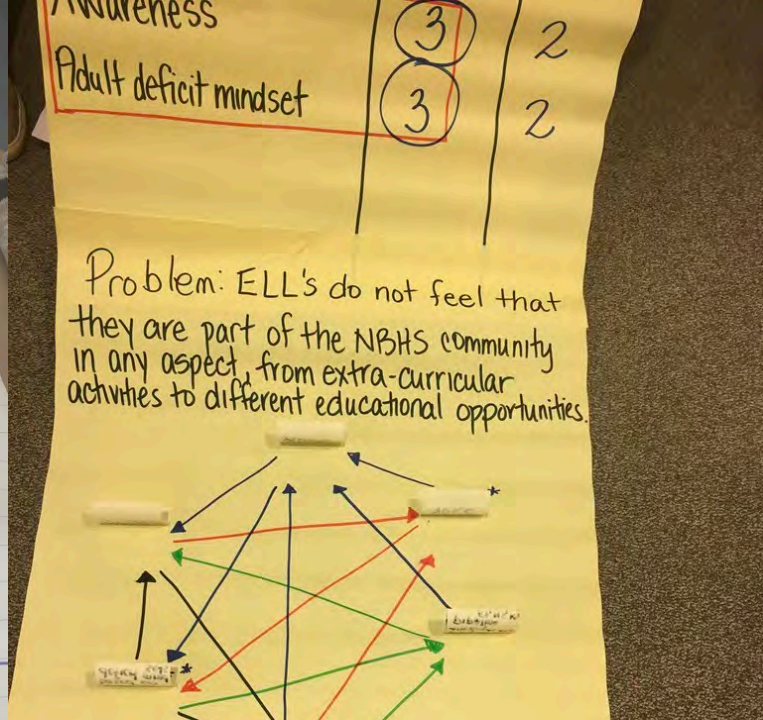 Awareness 3 2
Adult deficit mindset 3 2
Problem: ELL's do not feel that
they are part of the NBHS community
in any aspect, from extra-curricular
activities to different educational opportunities.
*
*